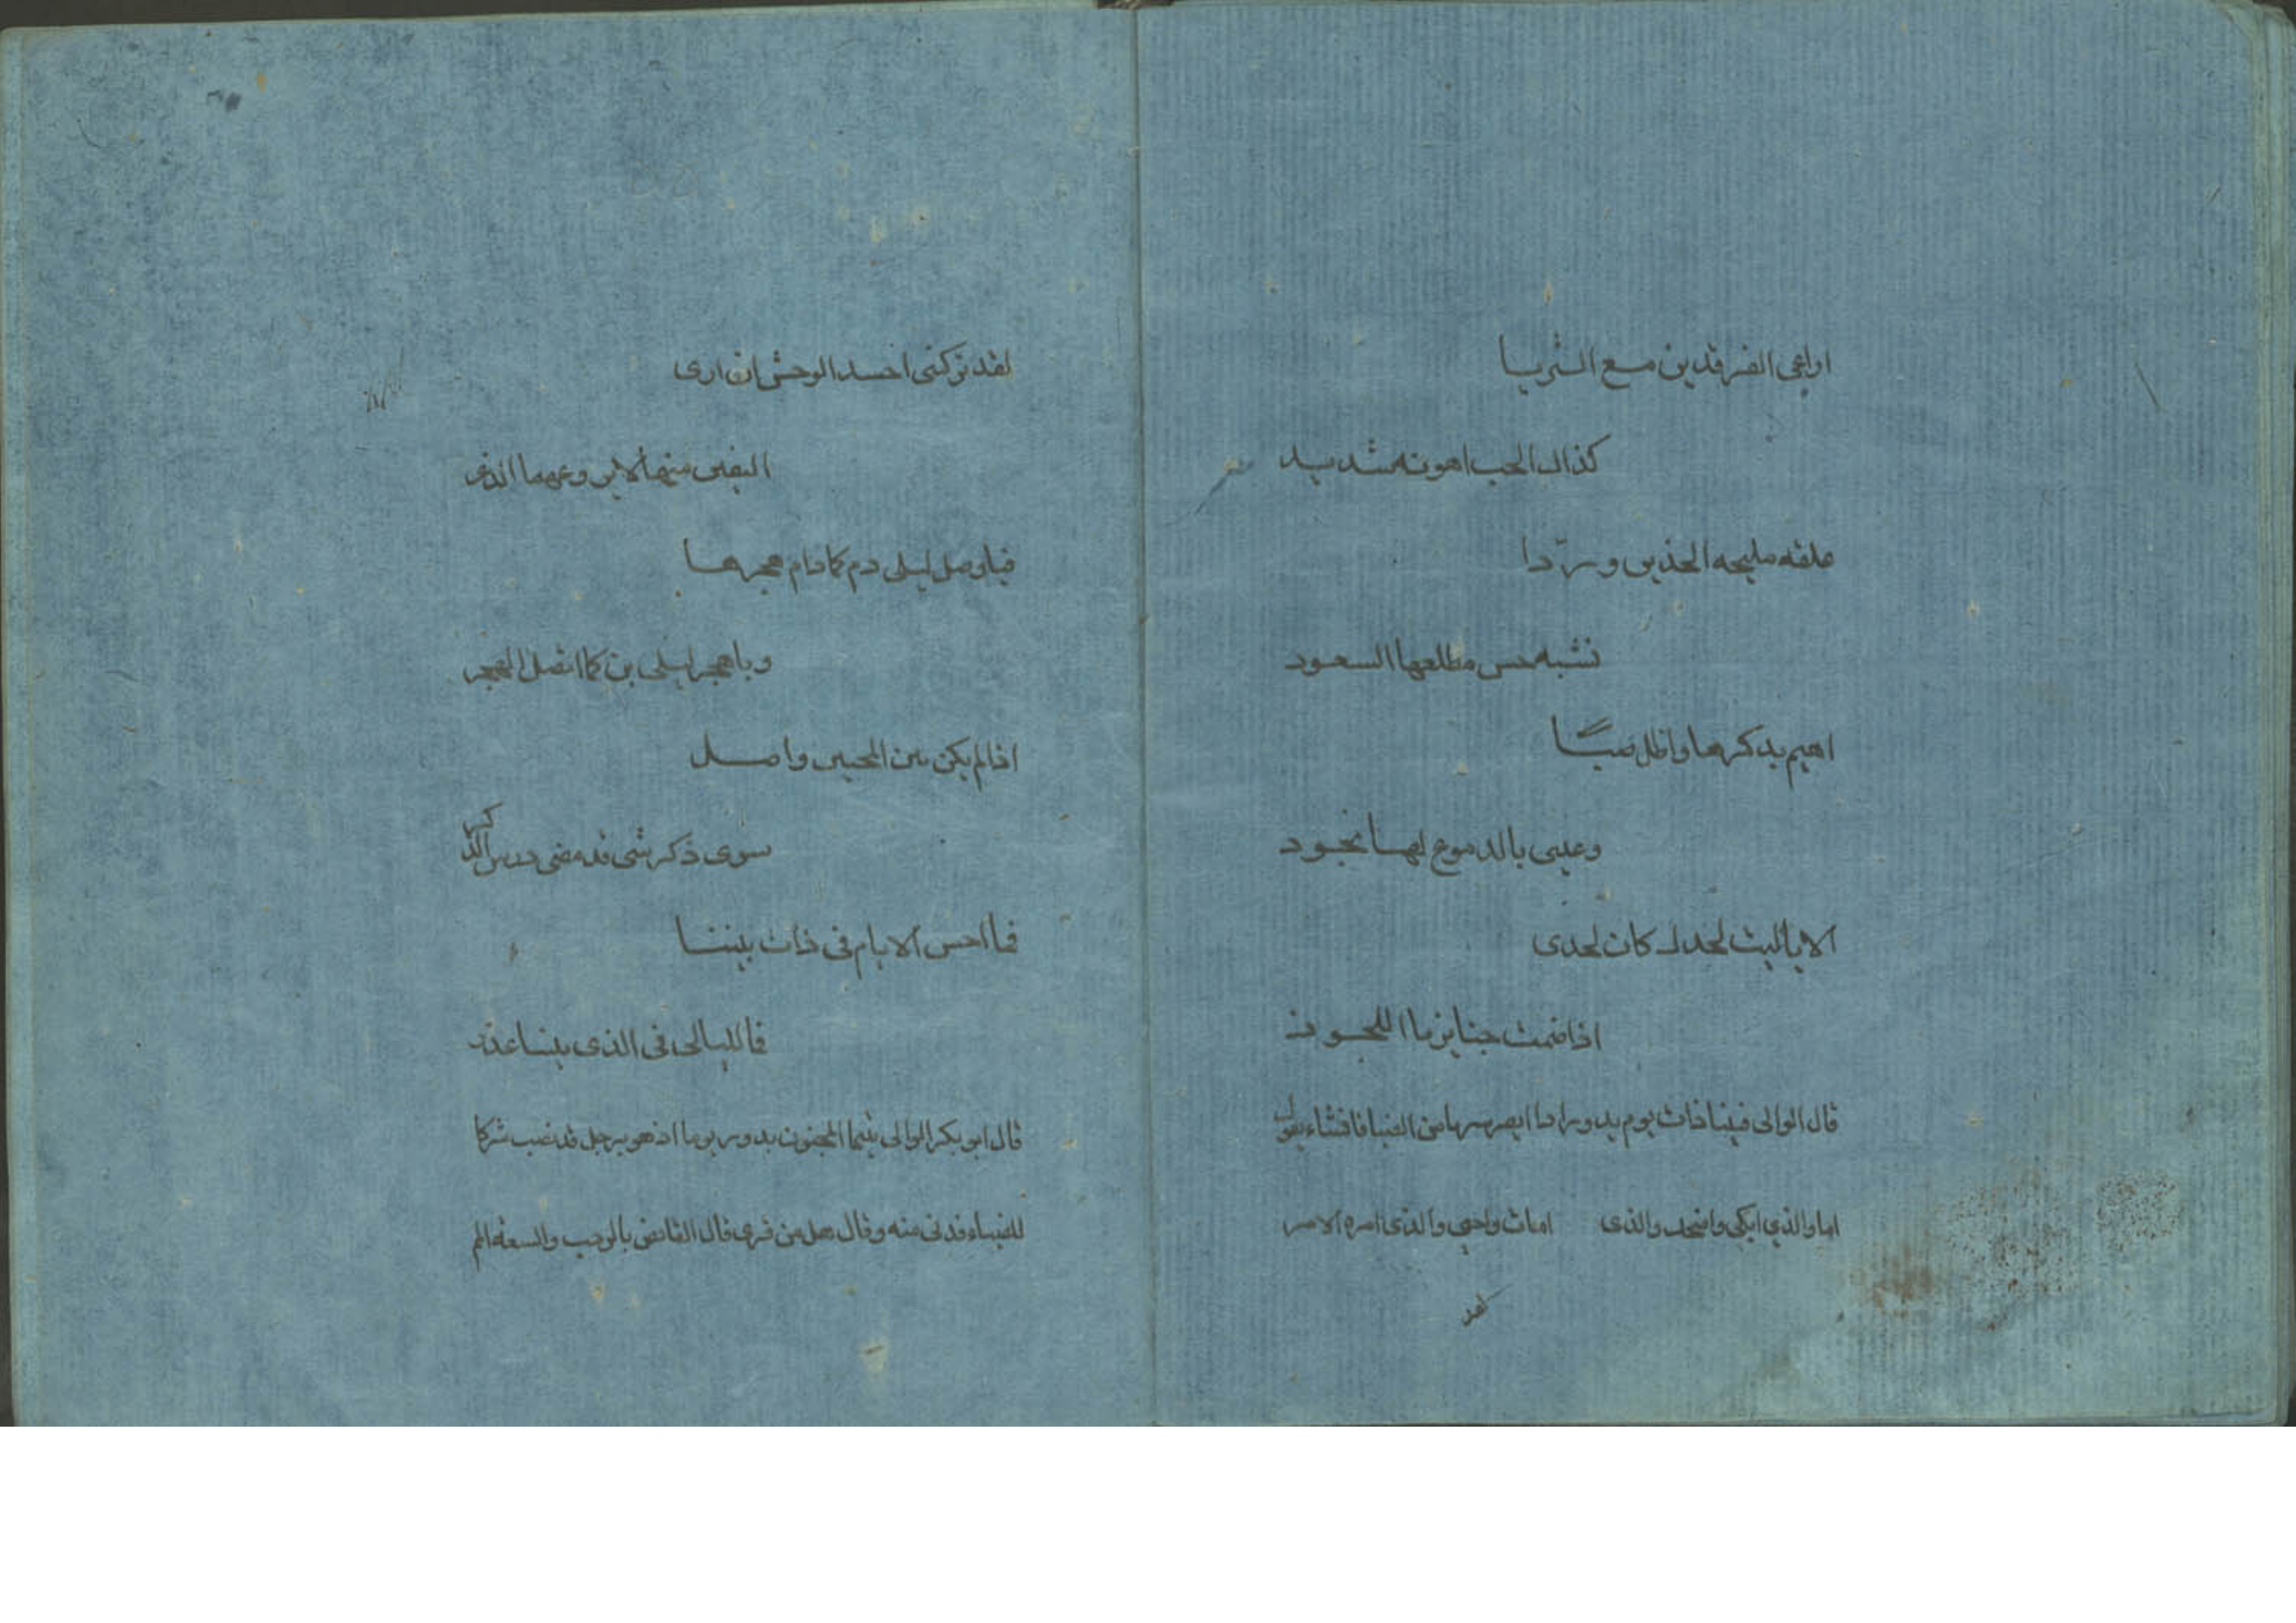 اراعى الفرقدين مع الثريا
كذاك الحب اهونه شديد
علقه مليحه الخدين ورّدا
تشبه حسن مطلعها السعود
اهيم بذكرها واظل صبّا
وعينى بالدموع لها تجود
الا ياليت لحدك كان لحدى
اذا ضمت جنايزنا اللحود
قال الوالى فبينا ذات يوم يدور اذا ابصر سربا من الظبا فانشاء يقول
اما والذي ابكى واضحك والذى امات واحيى والذى امره الامر
لقد
لقد تركتنى احسد الوحش ان ارى
اليفين منها لا يروعهما الذعر
فياوصل ليلى دم كما دام هجرها
وياهجر ليلى بن كما اتصل الهجر
اذا لم يكن بين المحبين واصل
سوى ذكر شى قد مضى درس الذكر
فما احسن الايام فى ذات بيننا
فما لليالى فى الذى بيننا عذر
قال ابو بكر الوالى بينما المجنون يدور يوما اذ هو برجل قد نصب شركا
للضباء فدنى منه وقال هل من قرى قال القانص بالرحب والسعة الم